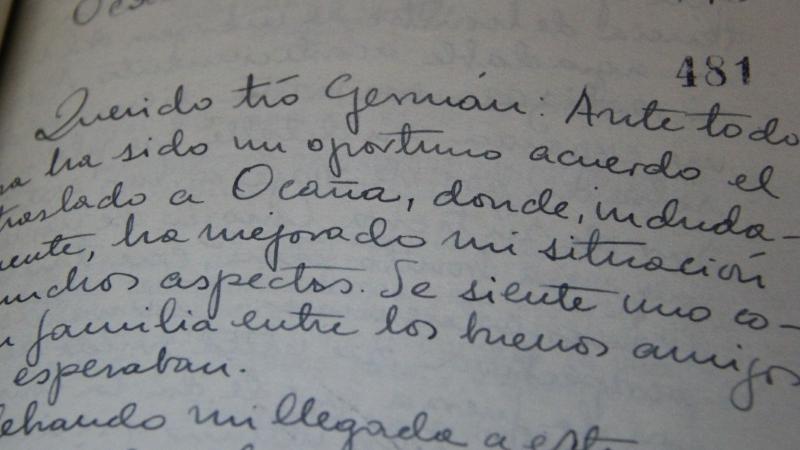 Oca
481
Querido tío Germán: Ante todo
ha sido un oportuno acuerdo el
traslado a Ocaña, donde, induda-
mente, ha mejorado mi situación
muchos aspectos. Se siente uno co-
familia entre los buenos amigos
esperaban.
mi llegada a este